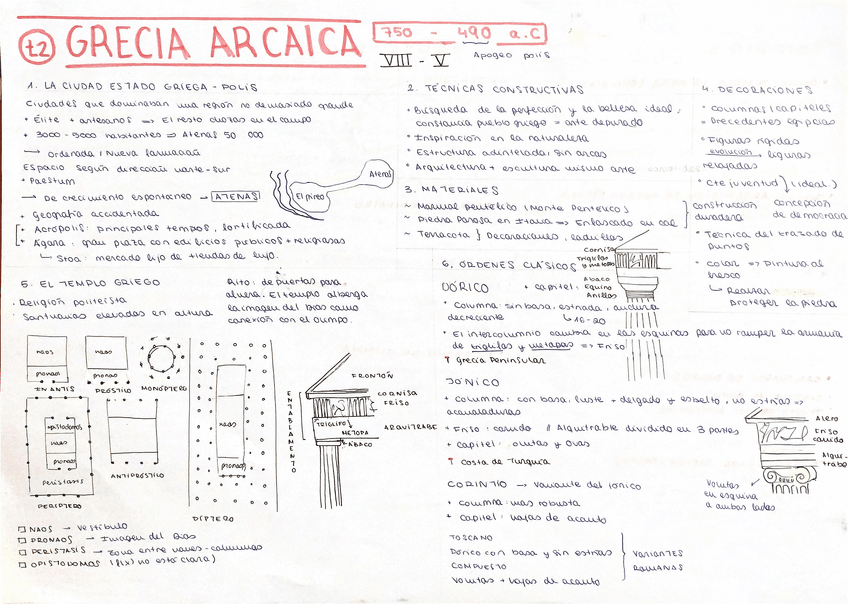 t2 GRECIA ARCAICA
750 - 490 a.C
VIII - V Apogeo polis
1. LA CIUDAD ESTADO GRIEGA - POLIS
Ciudades que dominaban una región no demasiado grande
* Élite + artesanos => El resto vivía en el campo
* 3000 - 5000 habitantes => Atenas 50 000
→ ordenada / Nueva formación
Espacio según dirección norte-sur
* Paestum
→ De crecimiento espontáneo → ATENAS
* Geografía accidentada
* Acrópolis: principales templos, fortificada
* Ágora: gran plaza con edificios públicos + religiosos
↳ Stoa: mercado lujo de tiendas de lujo.
Atenas
El pireo
2. TÉCNICAS CONSTRUCTIVAS
* Búsqueda de la perfección y la belleza ideal,
constancia pueblo griego = arte depurado
* Inspiración en la naturaleza
* Estructura adintelada, sin arcos
* Arquitectura + escultura mismo arte
3. MATERIALES
~ Marmol pentélico (Monte Pentélico)
~ Piedra Porosa en Italia => Enfoscado en cal
~ Terracota } Decoraciones, ladrillos
construcción duradera
concepción de democracia
4. DECORACIONES
* Columnas / capiteles
= Precedentes egipcias
* Figuras rígidas
evolución → figuras
relajadas
* Cte juventud } (ideal)
* Técnica del trazado de
puntos
* Color => Pintura al
fresco
↳ Realzar
proteger la piedra
5. EL TEMPLO GRIEGO
· Religión politeísta
· Santuarios elevados en altura
Rito: de puertas para
afuera. El templo alberga
la imagen del Dios como
conexión con el olimpo.
naos
pronaos
INANTIS
naos
pronaos
PRÓSTILO
MONÓPTERO
opistodomos
naos
pronaos
peristasis
PERÍPTERO
ANTIPRÓSTILO
naos
pronaos
DÍPTERO
ENTABLAMENTO
FRONTÓN
CORNISA
FRISO
TRIGLIFO
METOPA
ARQUITRABE
ÁBACO
□ NAOS → Vestíbulo
□ PRONAOS → Imagen del Dios
□ PERISTASIS → Zona entre naves-columnas
□ OPISTODOMOS (f(x) no está clara)
6. ÓRDENES CLÁSICOS
Cornisa
Triglifos
y metopas
Abaco
Equino
Anillos
DÓRICO + capitel:
* Columna: sin basa, estriada, anchura
decreciente ↳ 16 - 20
* El intercolumnio cambia en las esquinas para no romper la armonía
de triglifos y metopas => Friso
Grecia Peninsular
JÓNICO
* Columna: con basa, fuste + delgado y esbelto, no estrías =>
acanaladuras
* Friso: corrido // Alquitrabe dividido en 3 partes
* capitel: volutas y ovas
Costa de Turquía
Alero
Friso
corrido
Alqui-
trabe
Volutas
en esquina
a ambos lados
CORINTIO → variante del jónico
* columna: mas robusta
* capitel: hojas de acanto
TOSCANO
Dórico con basa y sin estrías
COMPUESTO
Volutas + hojas de acanto
VARIANTES
ROMANAS